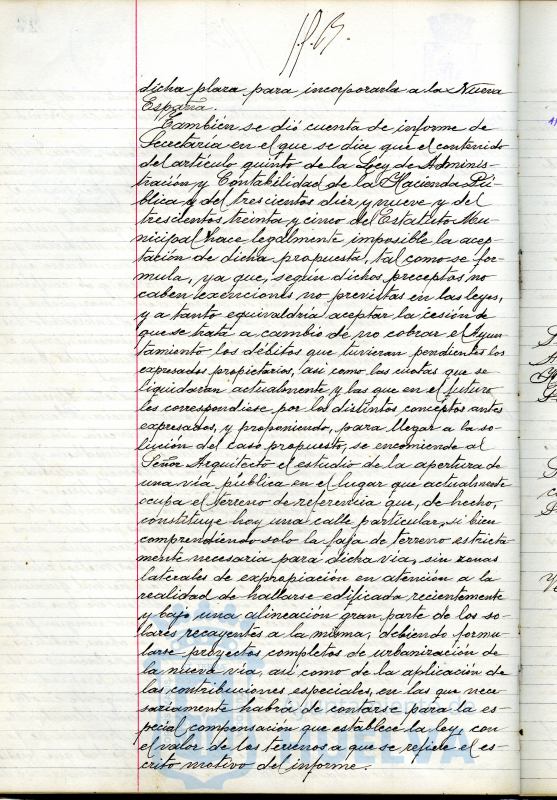 dicha plaza para incorporarla a la Nueva
España.
También se dió cuenta de informe de
Secretaría en el que se dice que el contenido
del artículo quinto de la Ley de Adminis-
tración y Contabilidad de la Hacienda Pú-
blica y del trescientos diez y nueve y del
trescientos treinta y cinco del Estatuto Mu-
nicipal hace legalmente imposible la acep-
tación de dicha propuesta, tal como se for-
mula, ya que, según dichos preceptos, no
caben exenciones no previstas en las leyes,
y a tanto equivaldría aceptar la cesión de
que se trata a cambio de no cobrar el Ayun-
tamiento los débitos que tuvieran pendientes los
expresados propietarios, así como las cuotas que se
liquidaran actualmente y las que en el futuro
les correspondiese por los distintos conceptos antes
expresados, y proponiendo, para llegar a la so-
lución del caso propuesto, se encomiende al
Señor Arquitecto el estudio de la apertura de
una vía pública en el lugar que actualmente
ocupa el terreno de referencia que, de hecho,
constituye hoy una calle particular, si bien
comprendiendo solo la faja de terreno estricta-
mente necesaria para dicha vía, sin zonas
laterales de expropiación en atención a la
realidad de hallarse edificada recientemente
y bajo una alineación gran parte de los so-
lares recayentes a la misma, debiendo formu-
larse proyectos completos de urbanización de
la nueva vía, así como de la aplicación de
las contribuciones especiales, en las que nece-
sariamente habrá de contarse para la es-
pecial compensación que establece la ley, con
el valor de los terrenos a que se refiere el es-
crito motivo del informe.
HUELVA